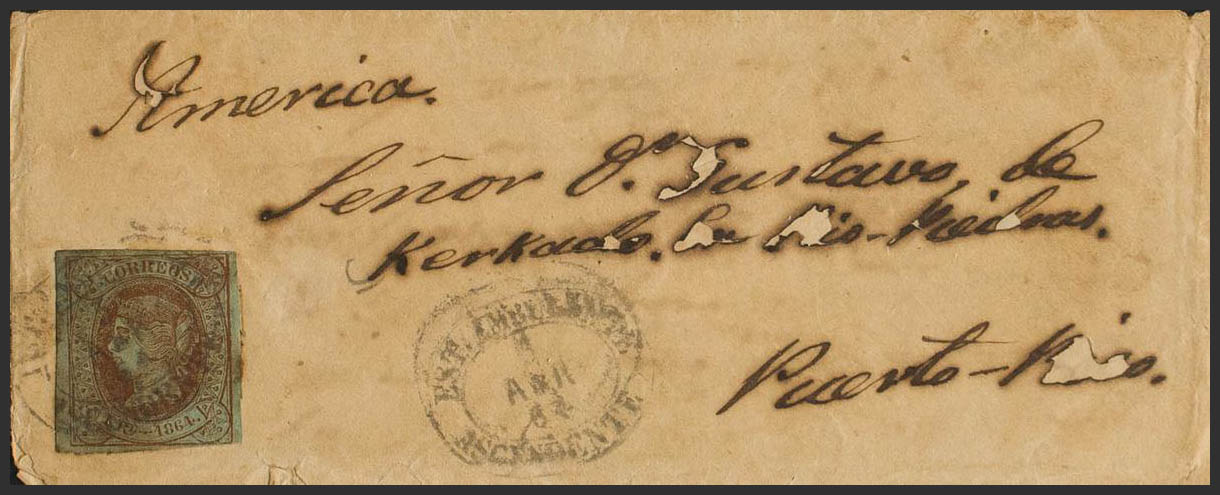 America.
Señor Dn Gustavo, de
Kerkado. En Rio-Peidras.
Puerto-Rico.
CORREOS
1864.
EST. AMBULANTE
1
ABR
64
ASCENDENTE